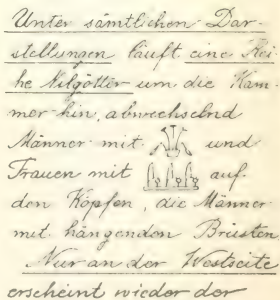 Unter sämtlichen Dar-
stellungen läuft eine Rei-
he Nilgötter um die Kam-
mer hin, abwechselnd
Männer mit und
Frauen mit auf
den Köpfen, die Männer
mit hängenden Brüsten
Nur an der Westseite
erscheint wieder der